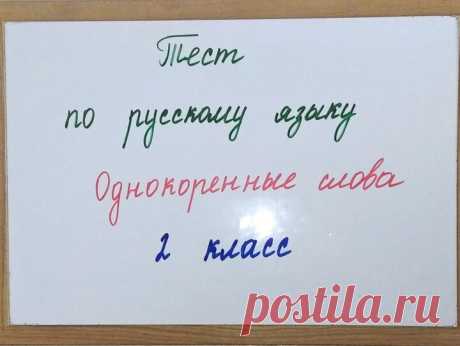 Тест
по русскому языку
Однокоренные слова
2 класс
postila.ru